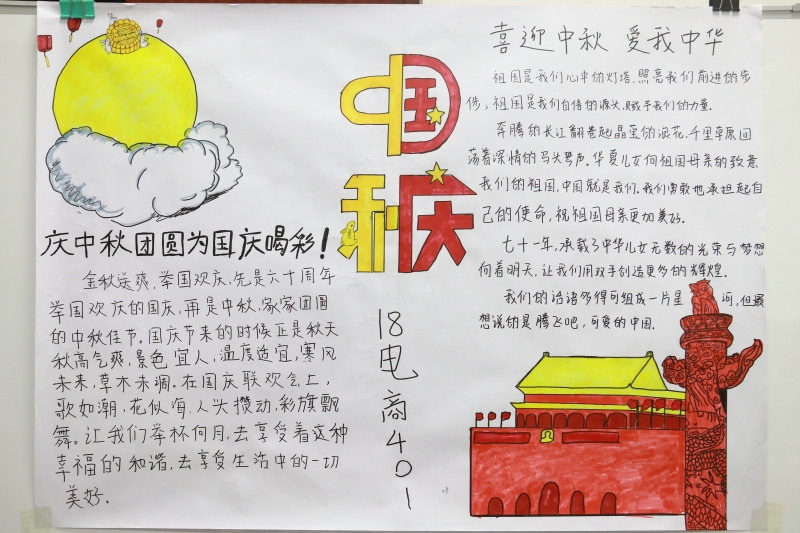 庆中秋团圆为国庆喝彩!
金秋送爽,举国欢庆,先是六十周年
举国欢庆的国庆,再是中秋,家家团圆
的中秋佳节。国庆节来的时候正是秋天
秋高气爽,景色宜人,温度适宜,寒风
未来,草木未凋。在国庆联欢会上,
歌如潮,花似海,人头攒动,彩旗飘
舞。让我们举杯向月,去享受着这种
幸福的和谐,去享受生活中的一切
美好.
中国
秋庆
18电商401
喜迎中秋 爱我中华
祖国是我们心中的灯塔,照亮我们前进的步
伐;祖国是我们自信的源头,赋予我们的力量.
奔腾的长江翻卷起晶莹的浪花,千里草原回
荡着深情的马头琴声。华夏儿女向祖国母亲的致意
我们的祖国,中国就是我们.我们勇敢地承担起自
己的使命,祝祖国母亲更加美好。
七十一年,承载了中华儿女无数的光荣与梦想
向着明天,让我们用双手创造更多的辉煌.
我们的话语多得可组成一片星河,但最
想说的是腾飞吧,可爱的中国.